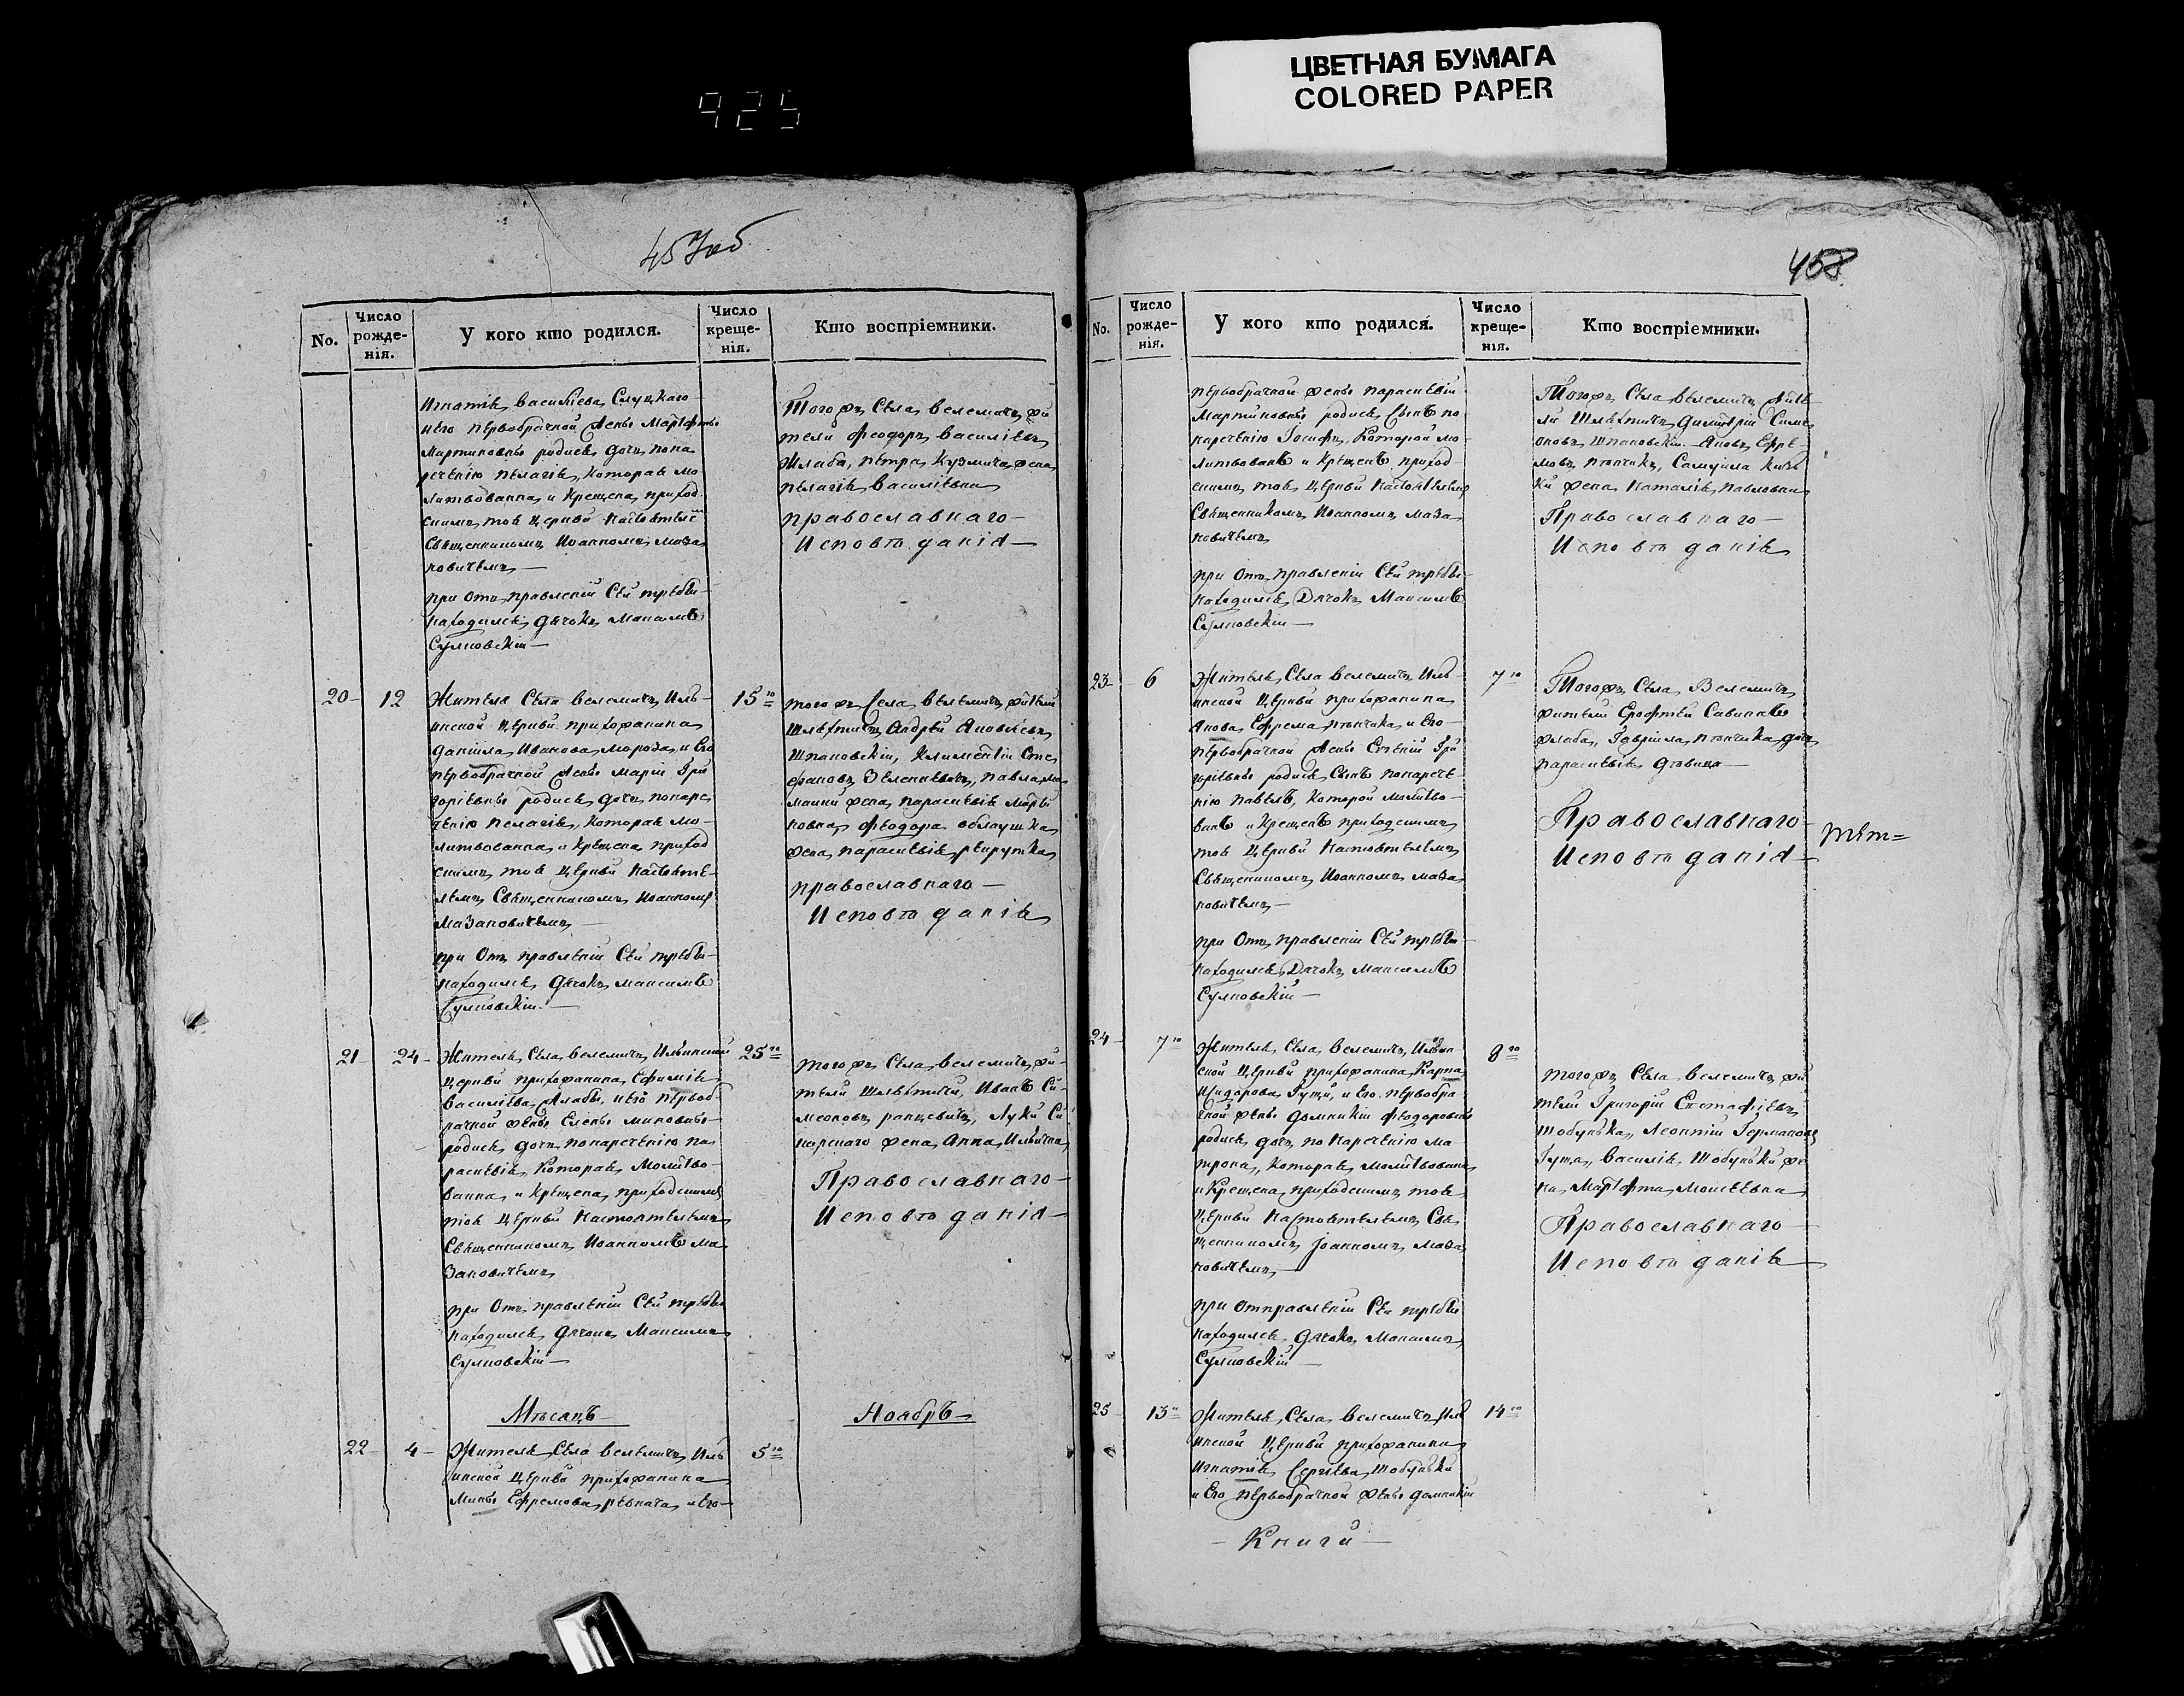 ЦВЕТНАЯ БУМАГА
COLORED PAPER
925
457об
No.
Число рожде-нія.
У кого кто родился.
Число креще-нія.
Кто воспріемники.
Игнатія Василіева Слуцкаго
и его первобрачной жены Марѳы
Мартиновны родися дочь по на
речению Пелагія, Которая мо
литвованна и Крещена приход
скимъ тоя Церкви Настоятеле
Священникомъ Иоанномъ Маза
новичемъ
при Отъправленіи Сей требы
находился дячокъ Максимъ
Сулковскій
Тогожъ Села Велемичъ жи
тели Феодоръ Василіевъ
Жлаба, Петра Кузмича жена
Пелагія Василіевна
Православнаго
Исповѣданія
20 12
Житель Села Велемичъ Иль
инской Церкви прихожанина
Даниила Иванова Мороза, и Его
первобрачной жены Маріи Гри
горіевны родися дочь по наре
чению Пелагія, Которая Мо
литвованна и Крещена приход
скимъ тоя Церкви Настояте
лемъ Священникомъ Иоанномъ
Мазановичемъ
при Отъ правленіи Сей требы
находился Дячокъ Максимъ
Сулковскій
15го
тогожъ Села Велемичъ жители
Шляхтичъ Андрей Яковлевъ
Шпаковскій, Климентій Сте
фановъ Зеленкевичъ, Павла
жена Параскевія
Феодора
жена Параскевія
православнаго
Исповѣданія
21 24
Житель Села Велемичъ Ильинской
Церкви прихожанина Ефимія
Василіева Жлабы, и Его первоб
рачной жены Елены Миновны
родися дочь по наречению Па
раскевія Которая Молитво
ванна и Крещена приходскимъ
тоя Церкви Настоятелемъ
Священникомъ Иоанномъ Ма
зановичемъ
при Отъ правленіи Сей требы
находился дячокъ Максимъ
Сулковскій
25го
тогожъ Села Велемичъ жи
тели Шляхтичи, Иванъ Си
меоновъ Ранцевичъ, Луки
жена Анна Илычна
Православнаго
Исповѣданія
Мѣсяцъ
Ноябрь
22 4
Житель Села Велемичъ Иль
инской Церкви прихожанина
Мины Ефремова и Его
5го
458
No.
Число рожде-нія.
У кого кто родился.
Число креще-нія.
Кто воспріемники.
первобрачной жены Параскевіи
Мартиновны родися Сынъ по
наречению Іосифъ, Которой мо
литвованъ и Крещенъ приход
скимъ тоя Церкви Настоятелемъ
Священникомъ Иоанномъ Маза
новичемъ
при Отъ правленіи Сей требы
находился Дячокъ Максимъ
Сулковскій
Тогожъ Села Велемичъ Жите
ли Шляхтичъ Димитрій Симе
оновъ Шпаковскій Яковъ Ефре
мовъ Самуила
жена Наталія Павловна
Православнаго
Исповѣданія
23 6
Житель Села Велемичъ Иль
инской Церкви прихожанина
Якова Ефрема и Его
первобрачной жены Евгеніи Гри
горіевны родися Сынъ по нарече
нію Павелъ, Которой Молитво
ванъ и Крещенъ приходскимъ
тоя Церкви Настоятелемъ
Священникомъ Иоанномъ Маза
новичемъ
при Отъ правленіи Сей требы
находился Дячокъ Максимъ
Сулковскій
7го
Тогожъ Села Велемичъ
жители Ерофей Савинъ
Жлаба, Гавріила дочь
Параскевія дѣвица
Православнаго
Исповѣданія
24 7го
Житель Села Велемичъ Ильин
ской Церкви прихожанина Карпа
Исидорова Гущи, и Его первобра
чной жены Домникіи Феодоровны
родися дочь по Наречению Ма
трона, Которая Молитвованна
и Крещена приходскимъ тоя
Церкви Настоятелемъ Свя
щенникомъ Іоанномъ Маза
новичемъ
при отправленіи Сей требы
находился дячокъ Максимъ
Сулковскій
8го
тогожъ Села Велемичъ жи
тели Григорій Евстафіевъ
Леонтій Германовъ
Гуща, Василія же
на Марѳа Моисеевна
Православнаго
Исповѣданія
25 13го
Житель Села Велемичъ Иль
инской Церкви прихожанина
Игнатія Сергѣева
и Его первобрачной жены Домникіи
14го
Книги